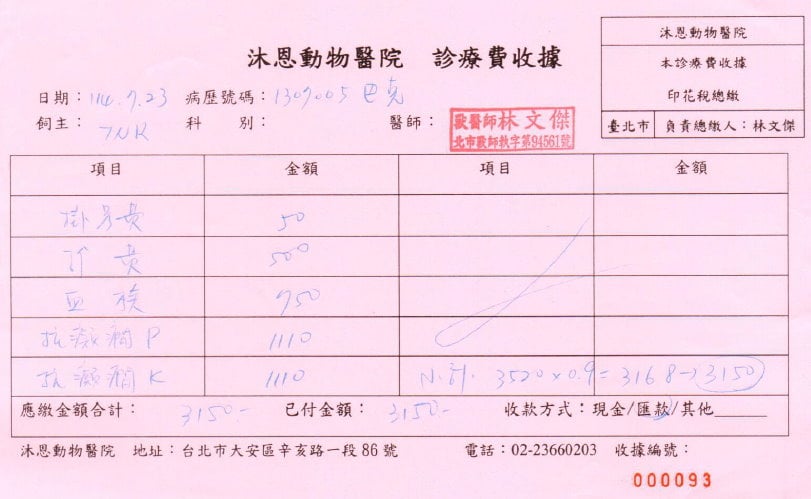 沐恩動物醫院 診療費收據
沐恩動物醫院
本診療費收據
印花稅總繳
臺北市 負責總繳人：林文傑
日期：114.7.23 病歷號碼：1309005 巴克
飼主：TNR 科 別： 醫師： 獸醫師林文傑
北市獸師執字第94561號
項目 金額 項目 金額
掛号費 50
診費 500
血檢 750
抗癲癇 P 1110
抗癲癇 K 1110 N.計. 3520×0.9=3168→3150
應繳金額合計：3150.- 已付金額：3150.- 收款方式：現金/匯款/其他
沐恩動物醫院 地址：台北市大安區辛亥路一段 86 號 電話：02-23660203 收據編號：
000093